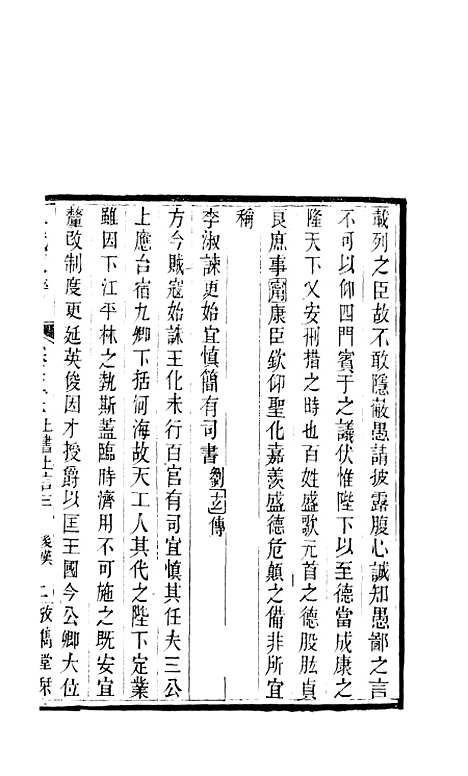 載列之臣故不敢隱蔽愚請披露腹心誠知愚鄙之言
不可以仰四門賓于之議伏惟陛下以至德當成康之
隆天下乂安刑措之時也百姓盛歌元首之德股肱貞
良庶事甯康臣欽仰聖化嘉羨盛德危顛之備非所宜
稱
李淑諫更始宜慎簡有司書 劉玄傳
方今賊寇始誅王化未行百官有司宜慎其任夫三公
上應台宿九卿下括河海故天工人其代之陛下定業
雖因下江平林之埶斯蓋臨時濟用不可施之既安宜
釐改制度更延英俊因才授爵以匡王國今公卿大位
上書上言三 後漢 二 敀儁堂栞